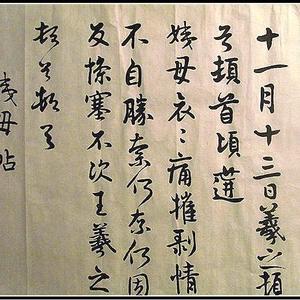 十一月十三日羲之頓
首頓首頃遘
姨母哀〻痛摧剝情
不自勝奈何奈何因
反慘塞不次王羲之
頓首頓首
姨母帖